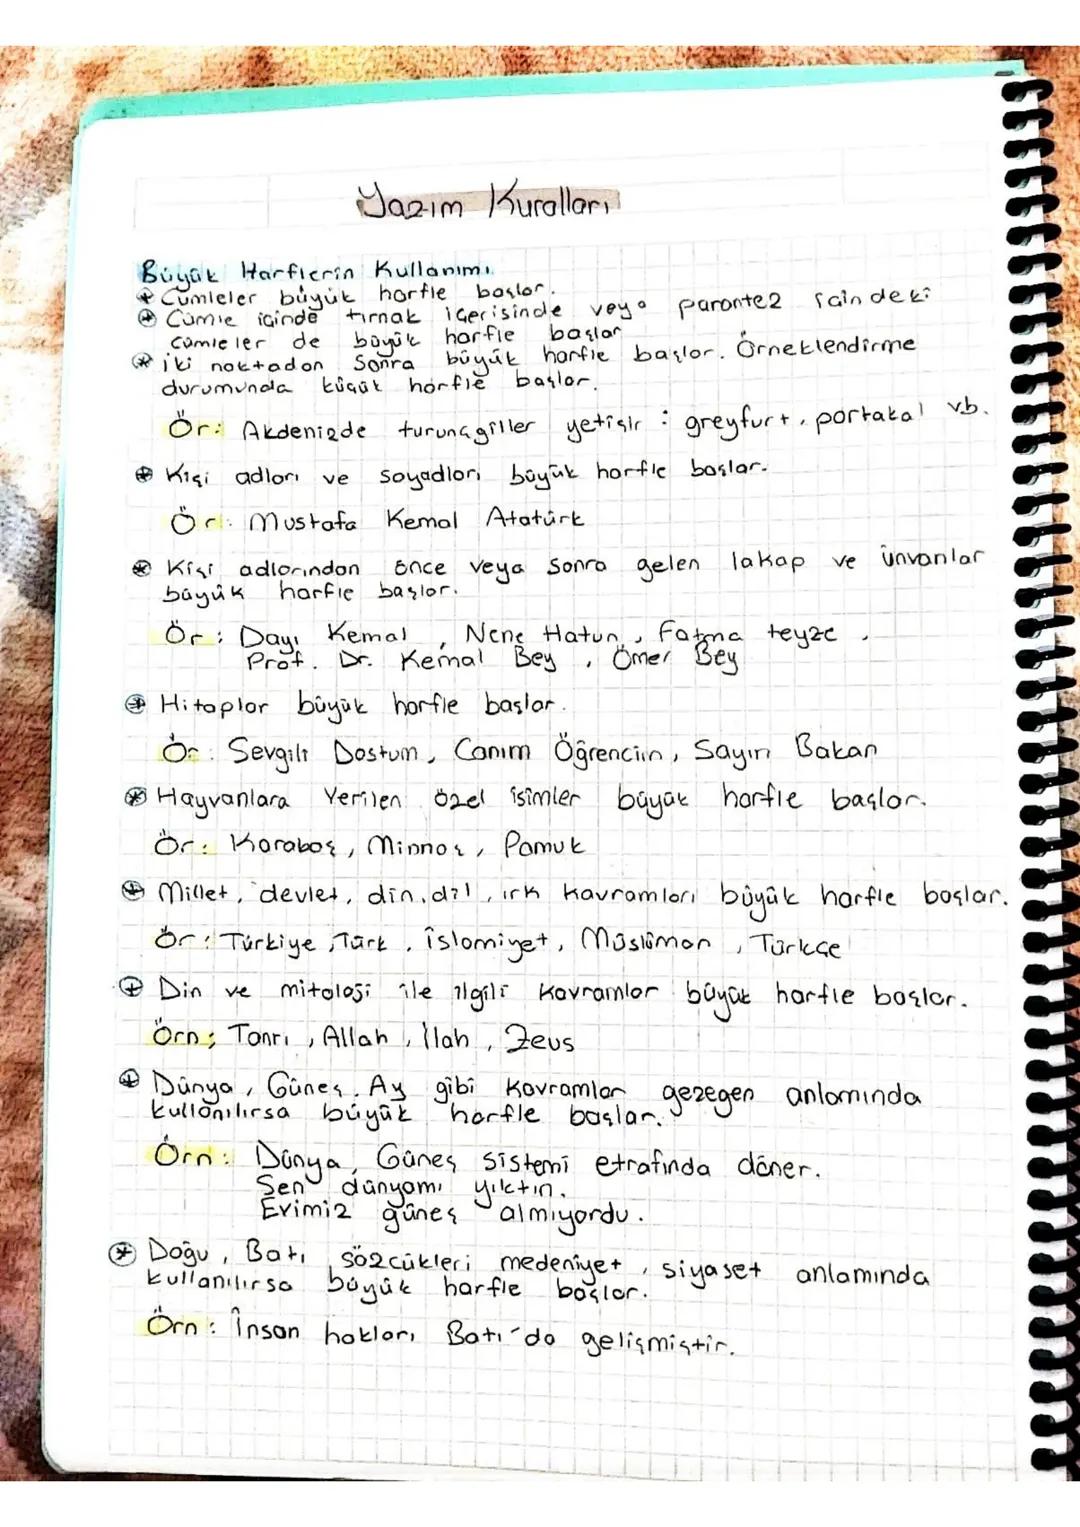 Yazım Kuralları
Büyük Harflerin Kullanımı
* Cümleler büyük harfle başlar.
* Cümle içinde tırnak içerisinde veya parantez içindeki
cümleler de büyük harfle başlar
* İki noktadan sonra büyük harfle başlar. Örneklendirme
durumunda küçük harfle başlar.
Ör: Akdenizde turunçgiller yetişir : greyfurt, portakal v.b.
* Kişi adları ve soyadları büyük harfle başlar.
Ör: Mustafa Kemal Atatürk
* Kişi adlarından önce veya sonra gelen lakap ve ünvanlar
büyük harfle başlar.
Ör: Dayı Kemal, Nene Hatun, Fatma teyze,
Prof. Dr. Kemal Bey, Ömer Bey
* Hitaplar büyük harfle başlar.
Ör: Sevgili Dostum, Canım Öğrencim, Sayın Bakan
* Hayvanlara Verilen özel isimler büyük harfle başlar.
Ör: Karabaş, Minnoş, Pamuk
* Millet, devlet, din, dil, ırk kavramları büyük harfle başlar.
Ör: Türkiye, Türk, İslamiyet, Müslüman, Türkçe
* Din ve mitoloji ile ilgili kavramlar büyük harfle başlar.
Örn; Tanrı, Allah, İlah, Zeus
* Dünya, Güneş, Ay gibi kavramlar gezegen anlamında
kullanılırsa büyük harfle başlar.
Örn: Dünya, Güneş sistemi etrafında döner.
Sen dünyamı yıktın.
Evimiz güneş almıyordu.
* Doğu, Batı sözcükleri medeniyet, siyaset anlamında
kullanılırsa büyük harfle başlar.
Örn: İnsan hakları Batı'da gelişmiştir.